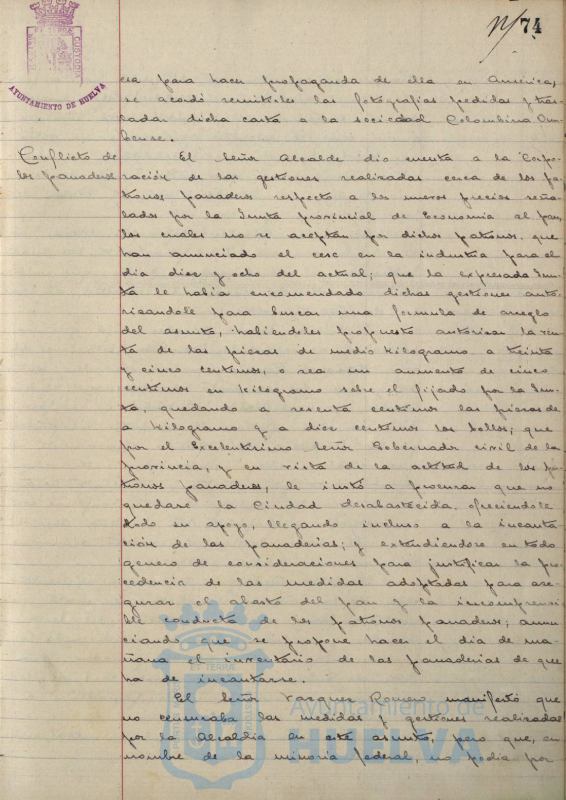 74
AYUNTAMIENTO DE HUELVA
cia para hacer propaganda de ella en America,
se acordó remitirles las fotografias pedidas y tras-
ladar dicha carta a la sociedad Colombina Onu-
bense.
Conflicto de
los panaderos
El Señor Alcalde dió cuenta a la Corpo-
ración de las gestiones realizadas cerca de los pa-
tronos panaderos respecto a los nuevos precios seña-
lados por la Junta provincial de Economia al pan,
los cuales no se aceptan por dichos patronos, que
han anunciado el cese en la industria para el
dia diez y ocho del actual; que la expresada Jun-
ta le habia encomendado dichas gestiones auto-
rizandole para buscar una formula de arreglo
del asunto, habiendoles propuesto autorizar la ven-
ta de las piezas de medio kilogramo a treinta
y cinco centimos, o sea un aumento de cinco
centimos en kilogramo sobre el fijado por la Jun-
ta, quedando a sesenta centimos las piezas de
a kilogramo y a diez centimos los bollos; que
por el Excelentisimo Señor Gobernador civil de la
provincia, y en vista de la actitud de los pa-
tronos panaderos, le instó a procurar que no
quedare la Ciudad desabastecida, ofreciendole
todo su apoyo, llegando incluso a la incauta-
ción de las panaderias; y extendiendose en todo
genero de consideraciones para justificar la pro-
cedencia de las medidas adoptadas para ase-
gurar el abasto del pan y la incomprensi-
ble conducta de los patronos panaderos; anun-
ciando que se propone hacer el dia de ma-
ñana el inventario de las panaderias de que
ha de incautarse.
El Señor Vazquez Romero manifestó que
no censuraba las medidas y gestiones realizadas
por la Alcaldia en este asunto, pero que, en
nombre de la minoria federal, no podia por
Ayuntamiento de
HUELVA